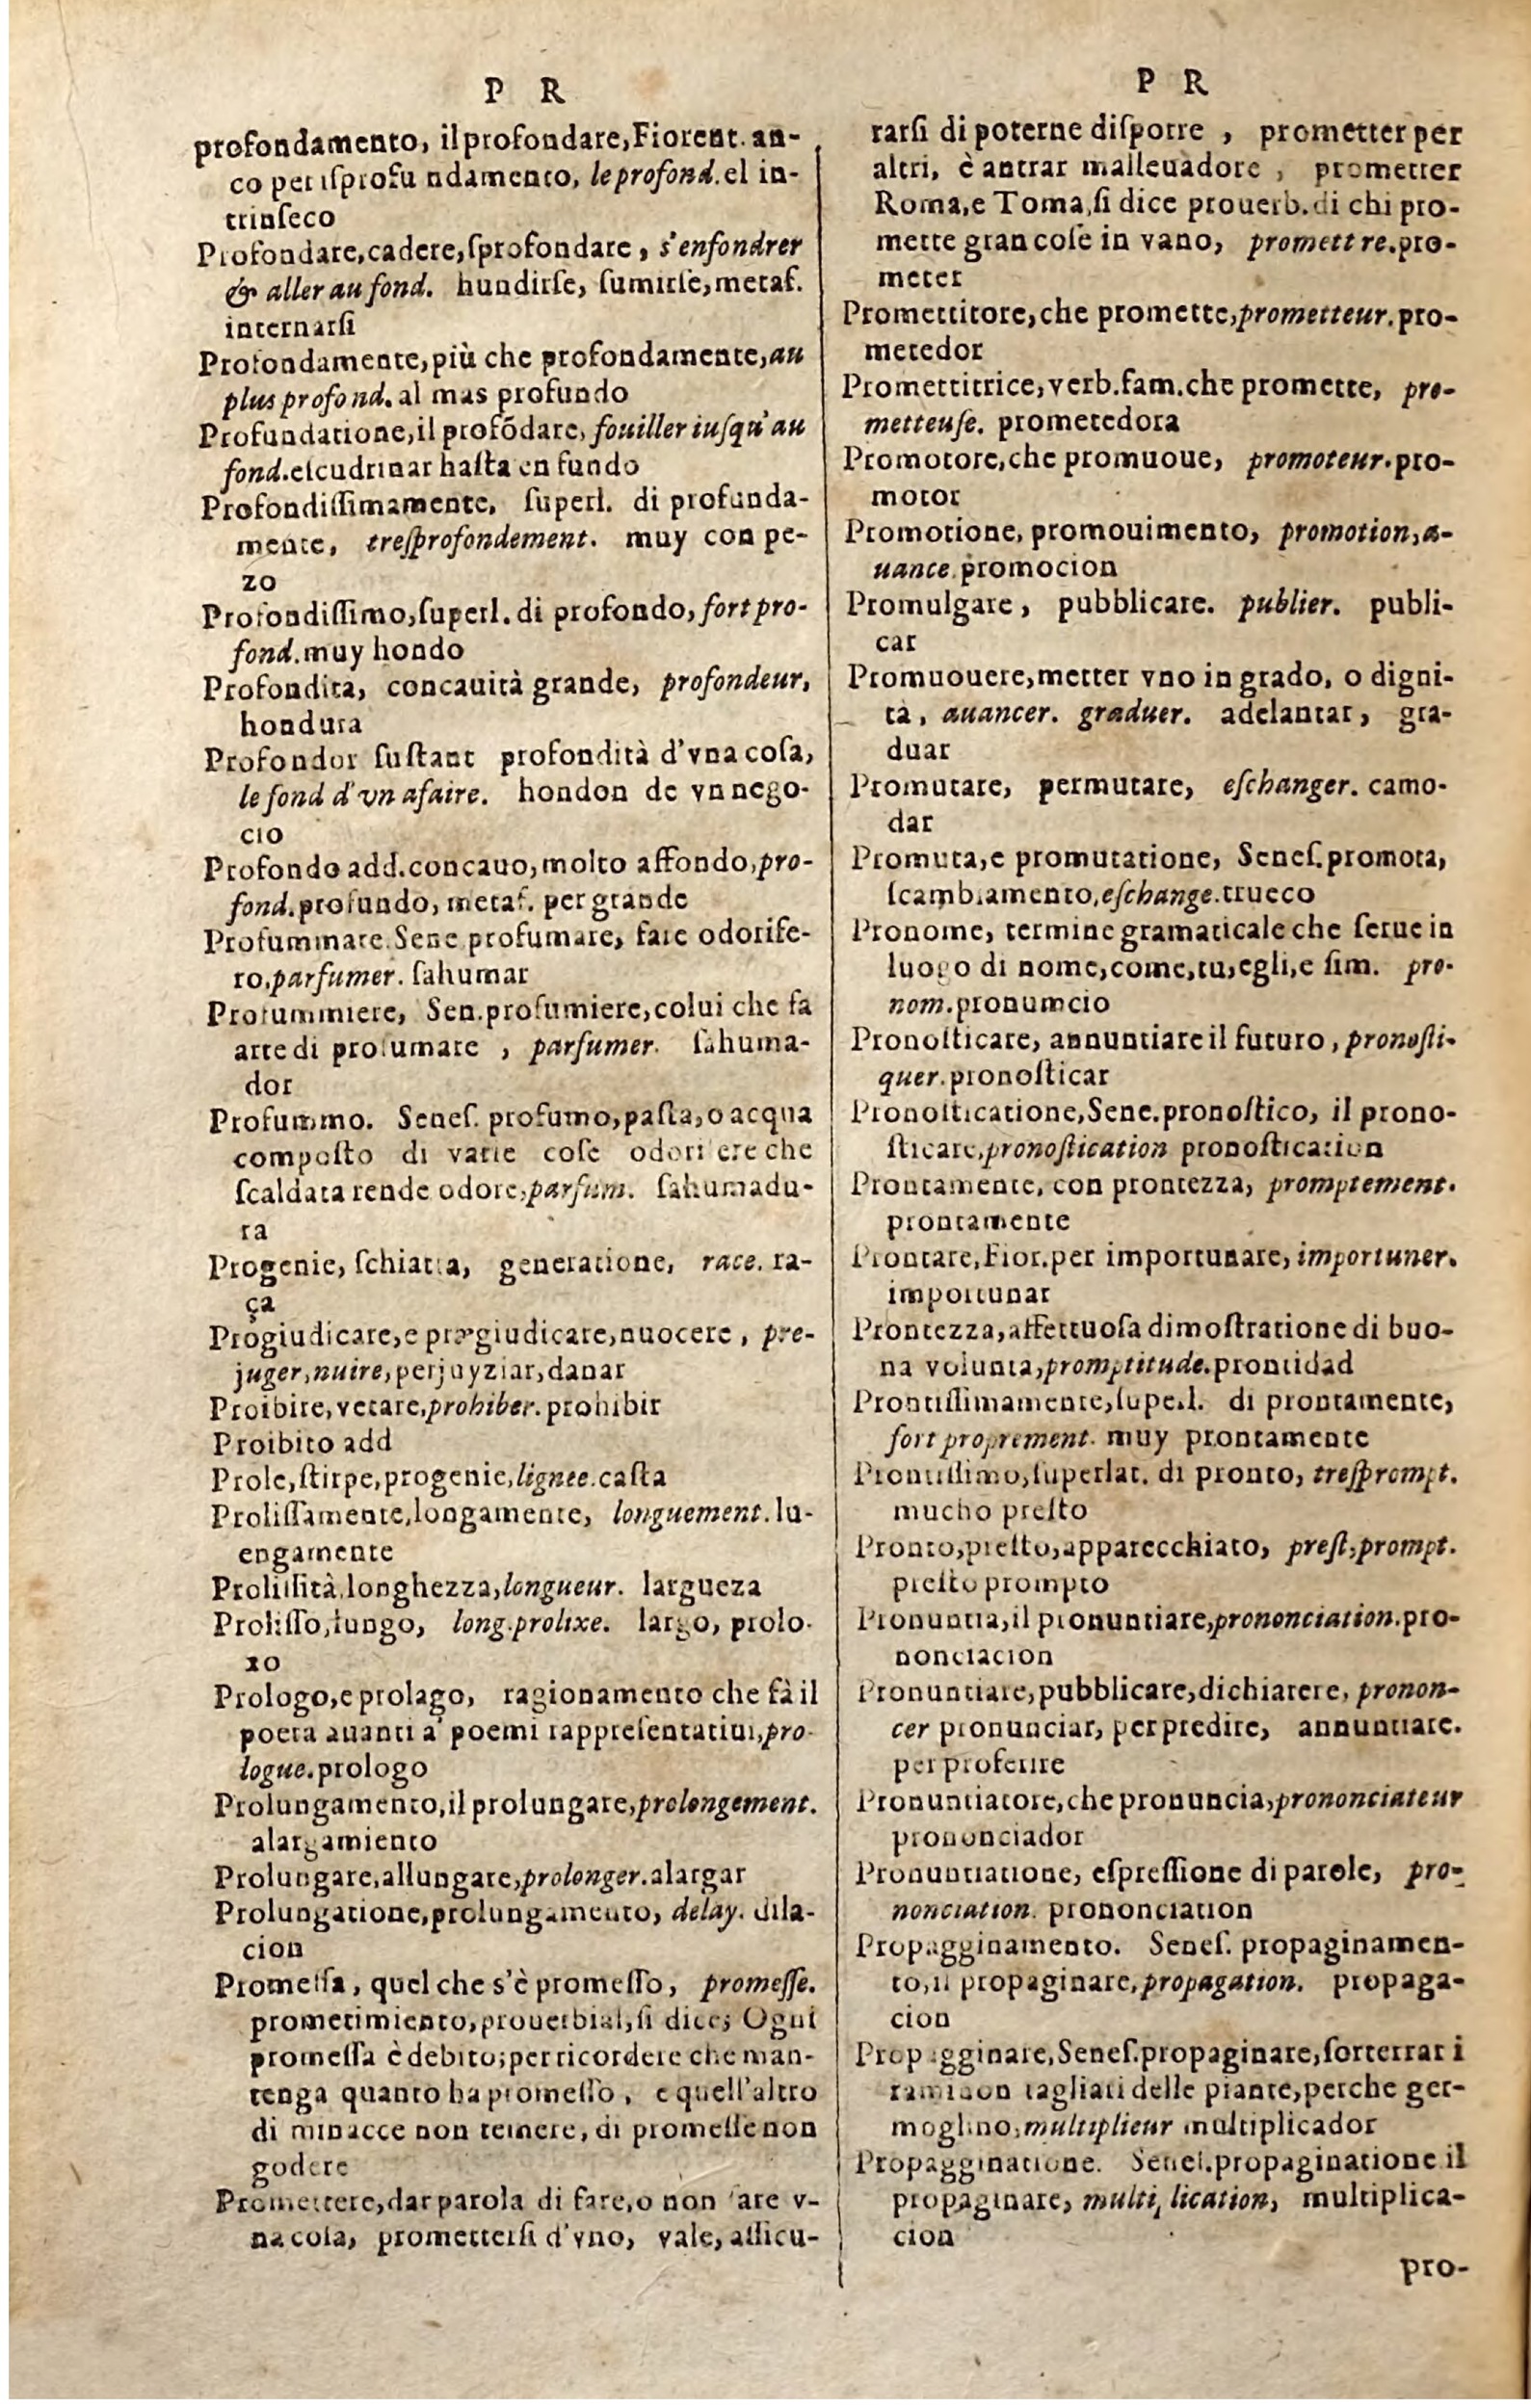 P R
profondamento, il profondare, Fiorent. an-
co per isprofu ndamento, le profond. el in-
trinſeco
Profondare, cadere, ſprofondare, s'enfondrer
& aller au fond. hundirſe, ſumirſe, metaf.
internarſi
Profondamente, più che profondamente, au
plus profond. al mas profundo
Profundatione, il profõdare, fouiller iuſqu'au
fond. eſcudrinar haſta en fundo
Profondiſſimamente, ſuperl. di profunda-
mente, treſprofondement. muy con pe-
zo
Profondiſſimo, ſuperl. di profondo, fort pro-
fond. muy hondo
Profondita, concauità grande, profondeur,
hondura
Profondor ſuſtant profondità d'vna coſa,
le fond d'vn afaire. hondon de vn nego-
cio
Profondo add. concauo, molto affondo, pro-
fond. profundo, metaf. per grande
Profummare. Sene. profumare, fare odorife-
ro, parfumer. ſahumar
Profummiere, Sen. profumiere, colui che fa
arte di profumare, parfumer. ſahuma-
dor
Profummo. Seneſ. profumo, paſta, o acqua
compoſto di varie coſe odorifere che
ſcaldata rende odore, parfum. ſahumadu-
ra
Progenie, ſchiatta, generatione, race. ra-
ça
Progiudicare, e prægiudicare, nuocere, pre-
juger, nuire, perjuyziar, danar
Proibire, vetare, prohiber. prohibir
Proibito add
Prole, ſtirpe, progenie, lignee. caſta
Proliſſamente, longamente, longuement. lu-
engamente
Proliſſità, longhezza, longueur. largueza
Proliſſo, lungo, long. prolixe. largo, prolo-
xo
Prologo, e prolago, ragionamento che fà il
poeta auanti a' poemi rappreſentatiui, pro-
logue. prologo
Prolungamento, il prolungare, prolongement.
alargamiento
Prolungare, allungare, prolonger. alargar
Prolungatione, prolungamento, delay. dila-
cion
Promeſſa, quel che s'è promeſſo, promeſſe.
prometimiento, prouerbial, ſi dice; Ogni
promeſſa è debito; per ricordere che man-
tenga quanto ha promeſſo, e quell'altro
di minacce non temere, di promeſſe non
godere
Promettere, dar parola di fare, o non fare v-
na coſa, prometterſi d'vno, vale, aſſicu-
P R
rarſi di poterne diſporre, prometter per
altri, è antrar malleuadore, prometter
Roma, e Toma, ſi dice prouerb. di chi pro-
mette gran coſe in vano, promettre. pro-
meter
Promettitore, che promette, prometteur. pro-
metedor
Promettitrice, verb. fam. che promette, pro-
metteuſe. prometedora
Promotore, che promuoue, promoteur. pro-
motor
Promotione, promouimento, promotion, a-
uance. promocion
Promulgare, pubblicare. publier. publi-
car
Promuouere, metter vno in grado, o digni-
tà, auancer. graduer. adelantar, gra-
duar
Promutare, permutare, eſchanger. camo-
dar
Promuta, e promutatione, Seneſ. promota,
ſcambiamento, eſchange. trueco
Pronome, termine gramaticale che ſerue in
luogo di nome, come, tu, egli, e ſim. pro-
nom. pronumcio
Pronoſticare, annuntiare il futuro, pronoſti-
quer. pronoſticar
Pronoſticatione, Sene. pronoſtico, il prono-
ſticare, pronoſtication pronoſticacion
Prontamente, con prontezza, promptement.
prontamente
Prontare, Fior. per importunare, importuner.
importunar
Prontezza, affettuoſa dimoſtratione di buo-
na volunta, promptitude. prontidad
Prontiſſimamente, ſuperl. di prontamente,
fort proprement. muy prontamente
Prontiſſimo, ſuperlat. di pronto, treſprompt.
mucho preſto
Pronto, preſto, apparecchiato, preſt, prompt.
preſto prompto
Pronuntia, il pronuntiare, prononciation. pro-
nonciacion
Pronuntiare, pubblicare, dichiarere, pronon-
cer pronunciar, per predire, annuntiare.
per proferire
Pronuntiatore, che pronuncia, prononciateur
prononciador
Pronuntiatione, eſpreſſione di parole, pro-
nonciation. prononciation
Propagginamento. Seneſ. propaginamen-
to, il propaginare, propagation. propaga-
cion
Propagginare, Seneſ. propaginare, ſotterrar i
rami non tagliati delle piante, perche ger-
moglino, multiplieur multiplicador
Propagginatione. Seneſ. propaginatione il
propaginare, multiplication, multiplica-
cion
pro-